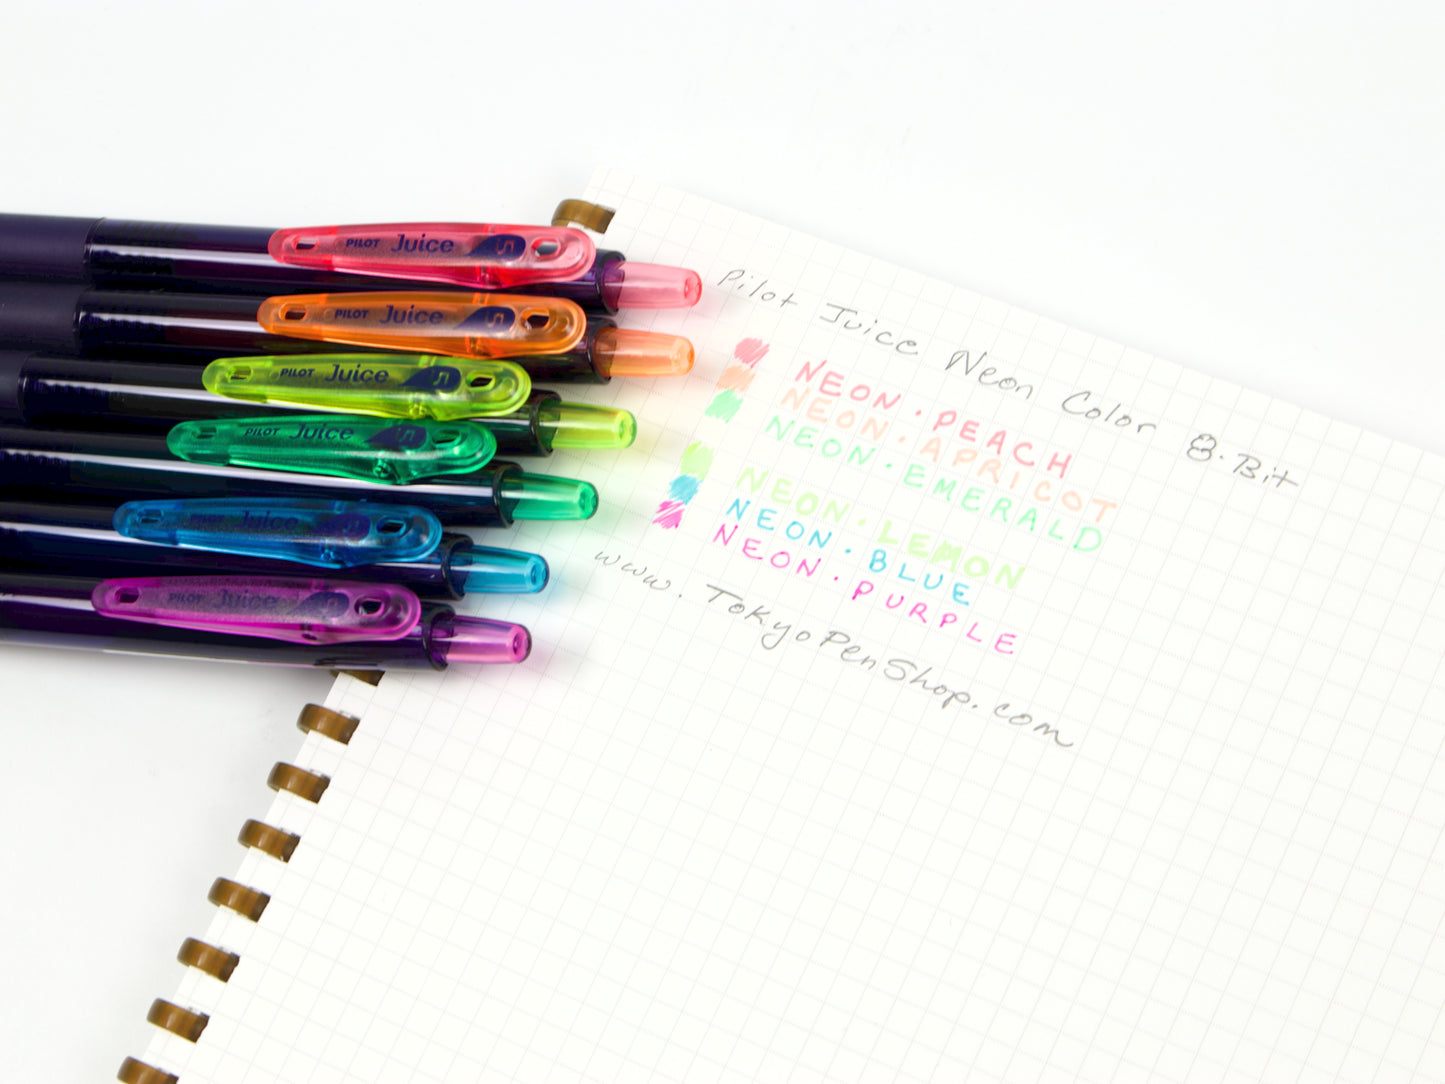 PILOT Juice 5
PILOT Juice 5
PILOT Juice 5
PILOT Juice 5
PILOT Juice
PILOT Juice
Pilot Juice Neon Color 8·Bit
NEON·PEACH
NEON·APRICOT
NEON·EMERALD
NEON·LEMON
NEON·BLUE
NEON·PURPLE
www.TokyoPenShop.com